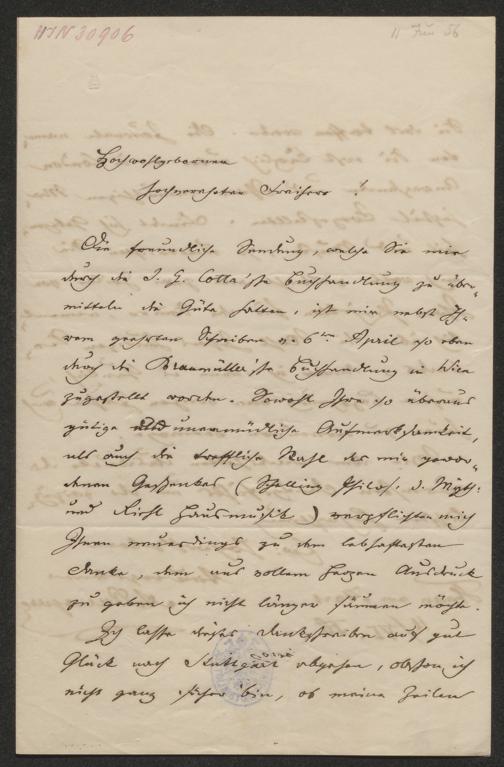 HIN 30906
11 Juni 56
Hochwohlgeborener
hochverehrter Freiherr!
Die freundliche Sendung, welche Sie mir
durch die J. G. Cotta'sche Buchhandlung zu über-
mitteln die Güte hatten, ist mir nebst Ih-
rem geehrten Schreiben v. 6ten April so eben
durch die Braumüller'sche Buchhandlung in Wien
zugestellt worden. Sowohl Ihre so überaus
gütige und unermüdliche Aufmerksamkeit,
als auch die treffliche Wahl der mir gewor-
denen Gaben (Schelling Philos. d. Myth.
und Riehl Hausmusik) verpflichten mich
Ihnen neuerdings zu dem lebhaftesten
Danke, dem aus vollem Herzen Ausdruck
zu geben ich nicht länger säumen möchte.
Ich lasse dieses Dankschreiben auf gut
Glück nach Stuttgart abgehen, obschon ich
nicht ganz sicher bin, ob meine Zeilen